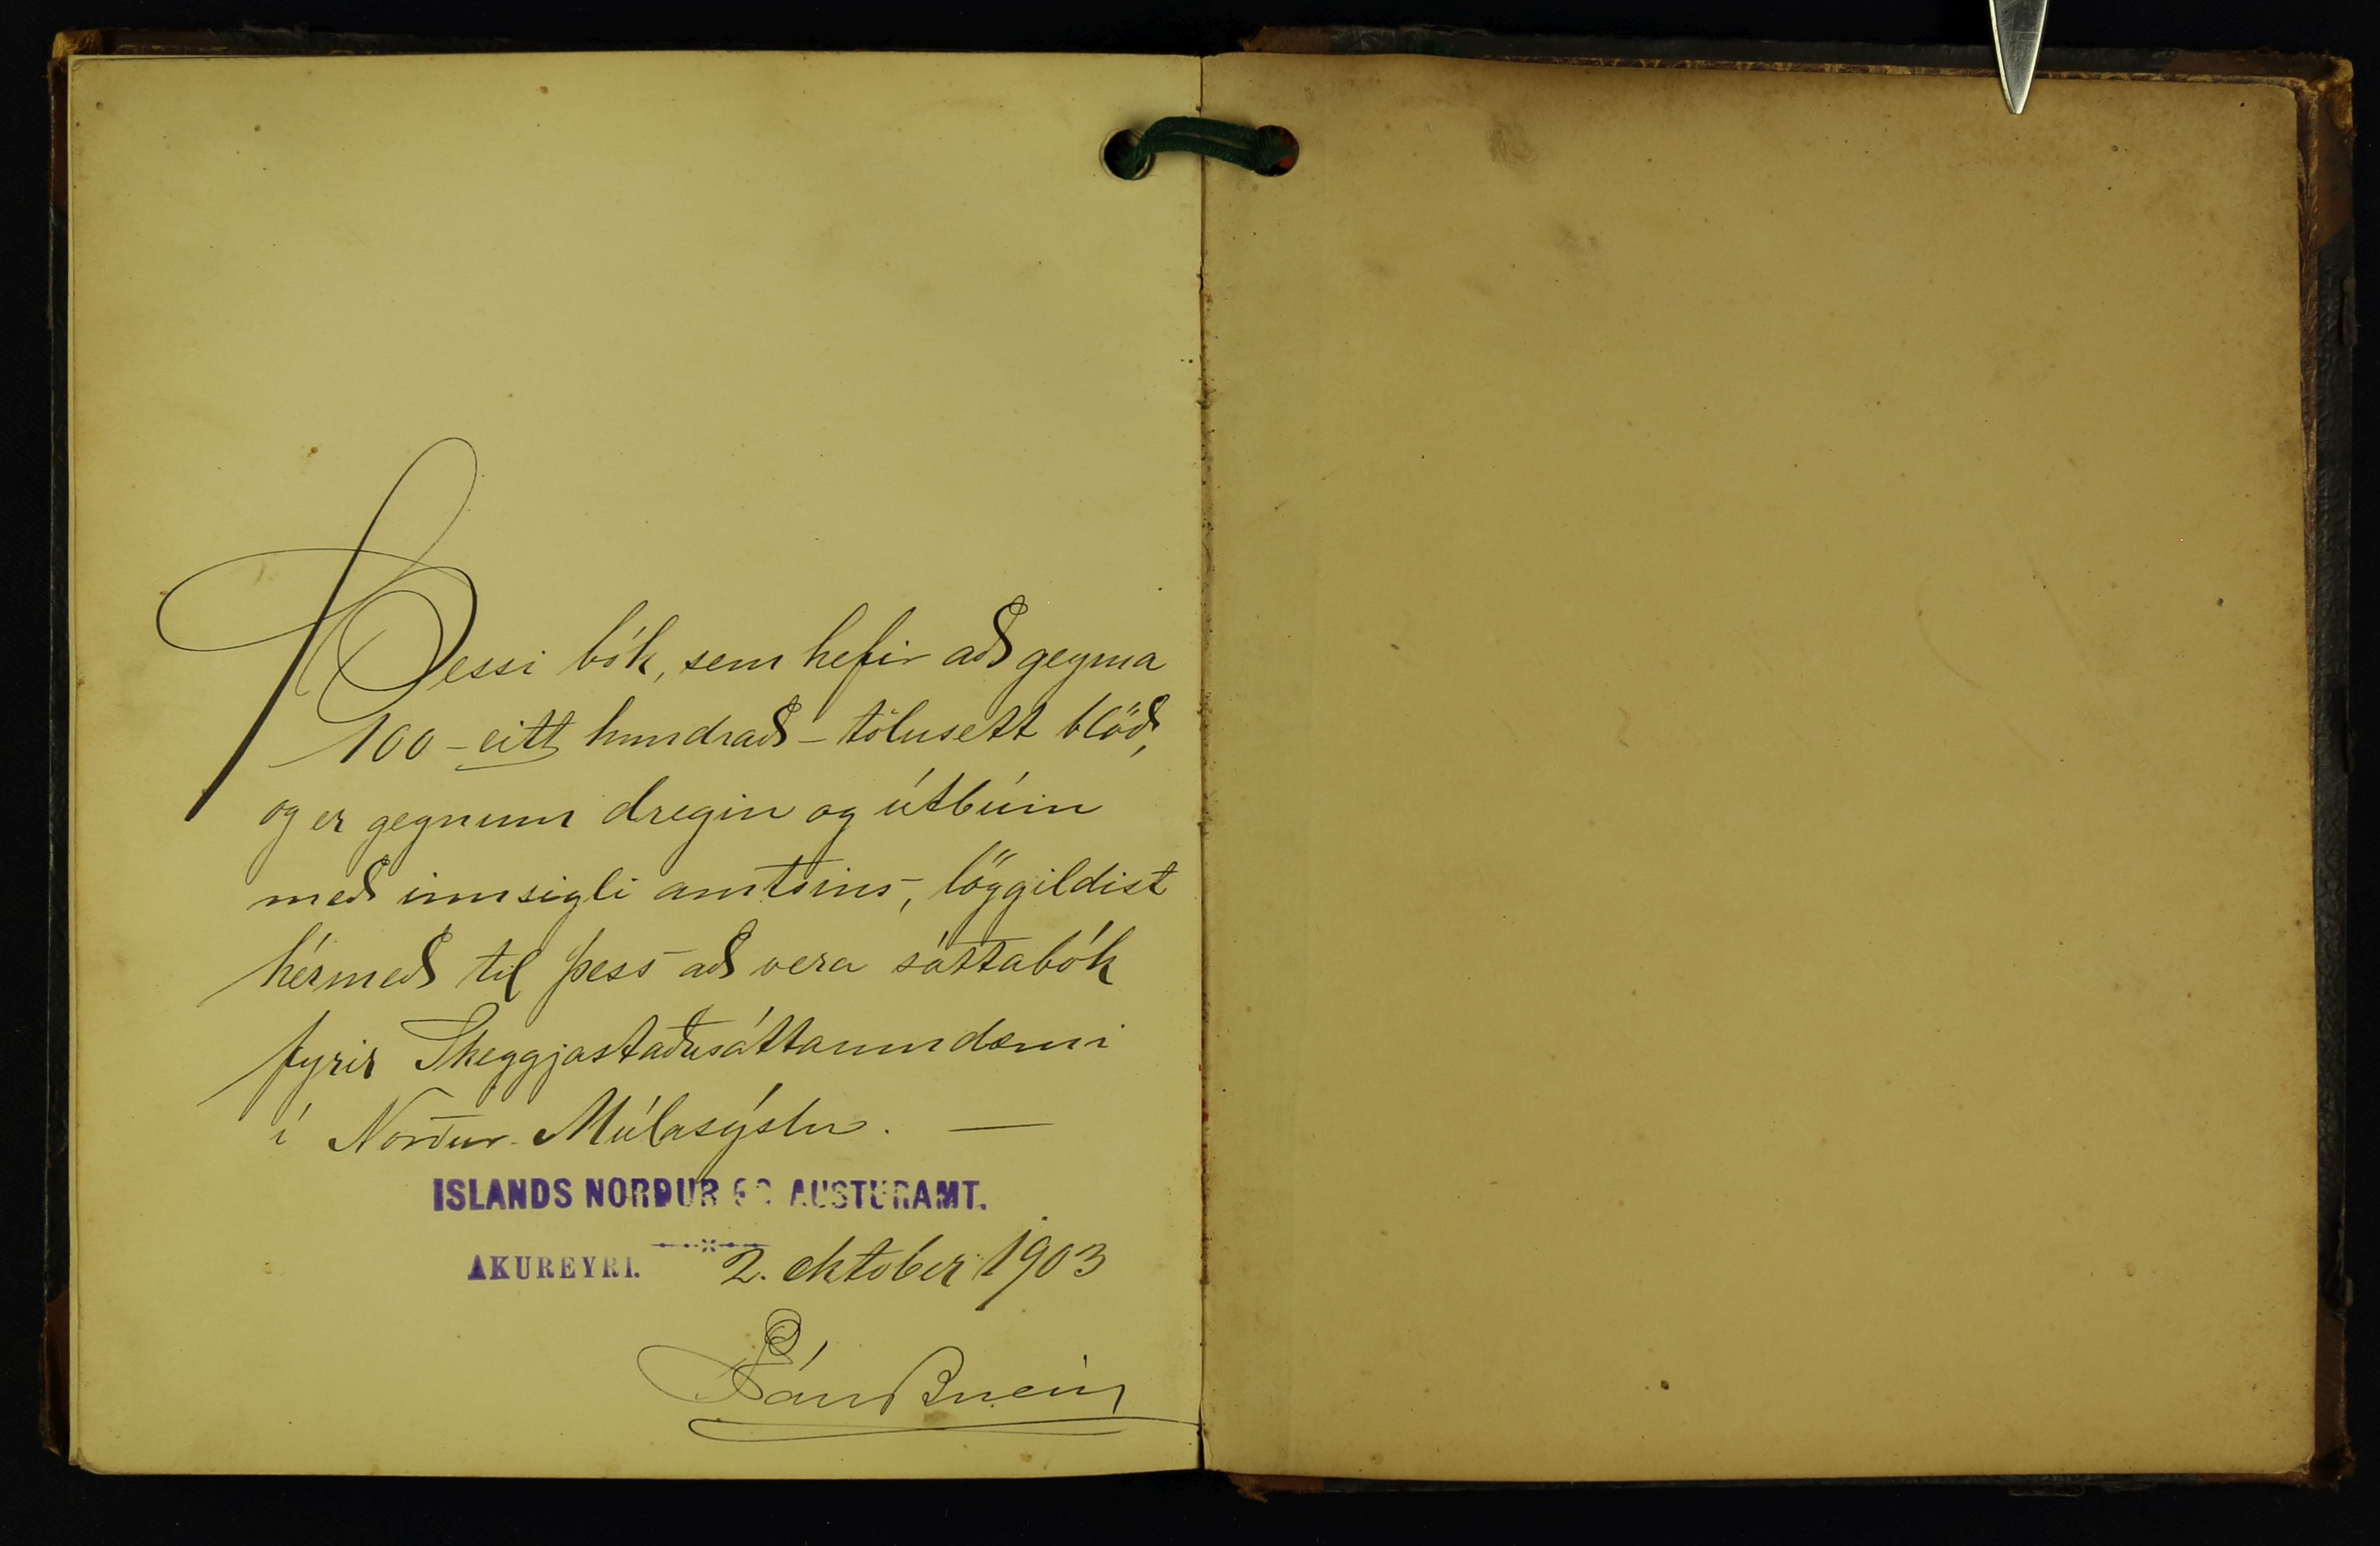 Þessi bók, sem hefir að geyma
100 - eitt hundrað - tölusett blöð,
og er gegnum dregin og útbúin
með innsigli amtsins, löggildist
hérmeð til þess að vera sáttabók
fyrir Skeggjastaðasáttaumdæmi
í Norður-Múlasýslu. —
ISLANDS NORÐUR OG AUSTURAMT.
AKUREYRI. 2. oktober 1903
Páll Briem